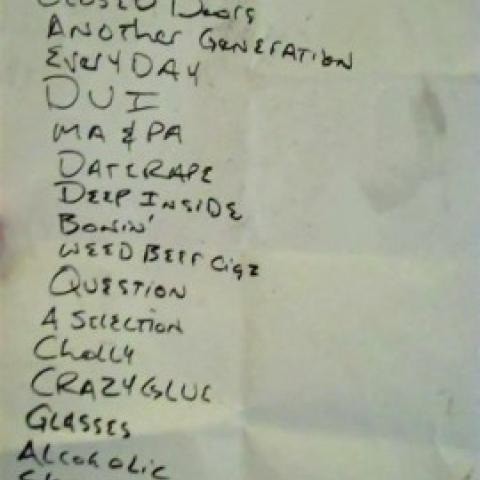 CLOSED Doors
ANOTHER GENERATION
EVERYDAY
DUI
MA & PA
DATERAPE
DEEP INSIDE
BONIN'
WEED BEER Cigz
QUESTION
A SELECTION
Cholly
CRAZYGLUE
GLASSES
Alcoholic